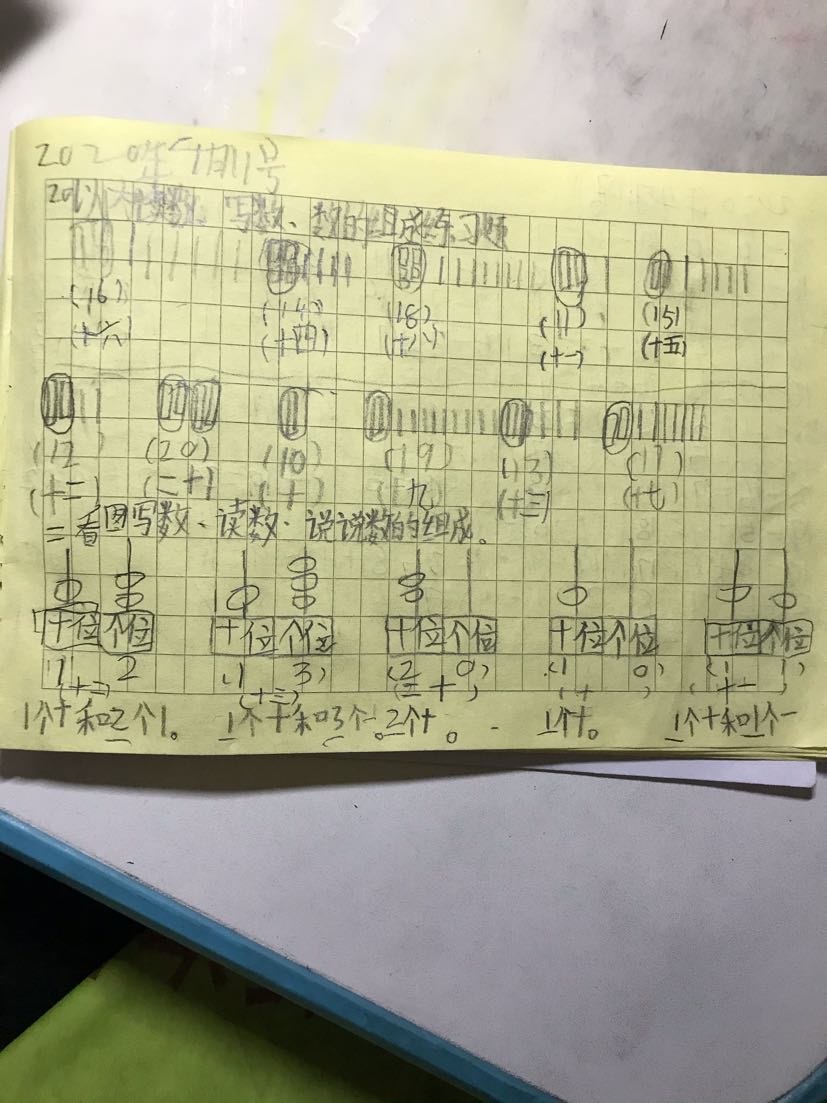 2020年 月11号
20以内读数、写数、数的组成练习题
(16) (14) (18) (11) (15)
(十六) (十四) (十八) (十一) (十五)
(12) (20) (10) (19) (13) (17)
(十二) (二十) (十) (十九) (十三) (十七)
二看图写数、读数、说说数的组成。
十位 个位 十位 个位 十位 个位 十位 个位 十位 个位
1 2 (1 3) (2 0) (1 0) (1 1)
(十二) (十三) (二十) (十) (十一)
1个十和2个1。 1个十和3个一。 2个十。 1个十。 1个十和1个一